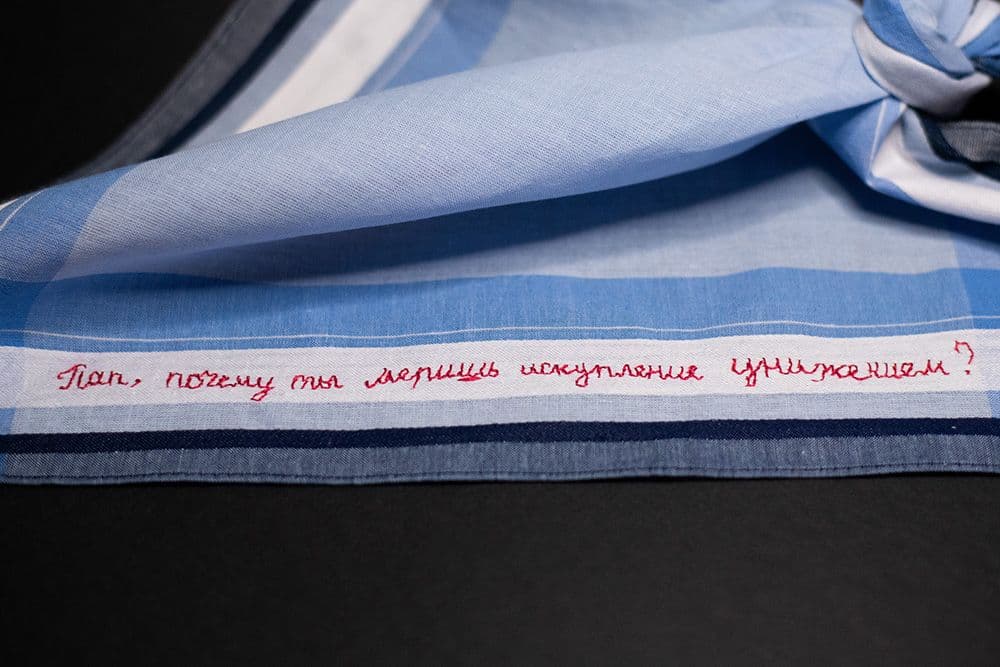 Пап, почему ты меришь искупление унижением?